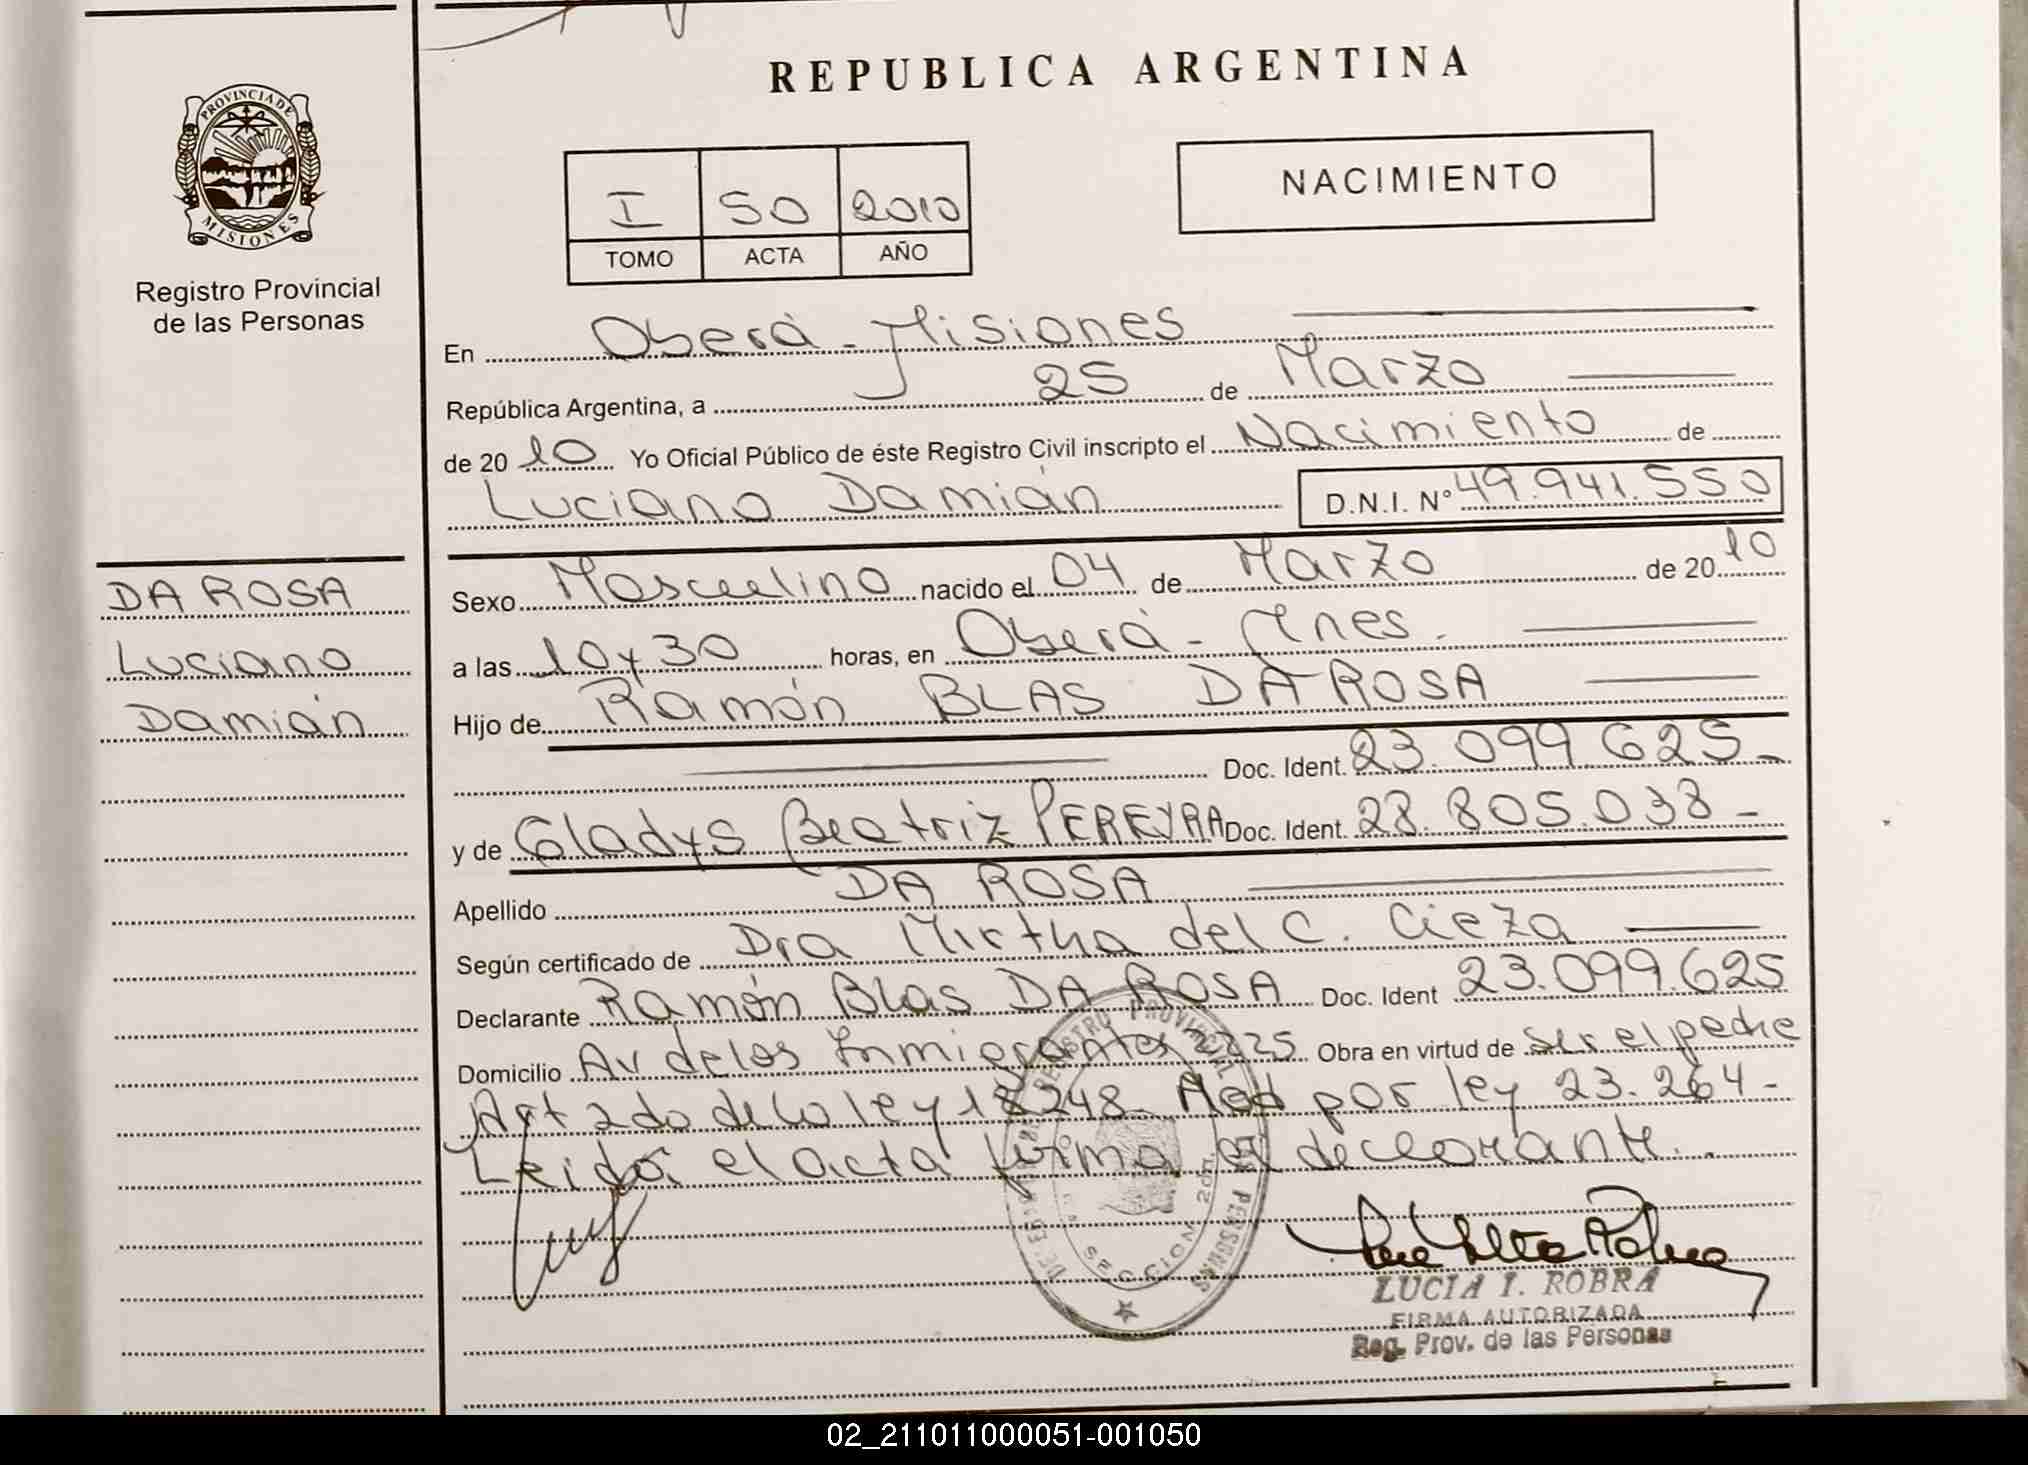 REPUBLICA ARGENTINA
PROVINCIA DE
MISIONES
Registro Provincial
de las Personas
I 50 2010
TOMO ACTA AÑO
NACIMIENTO
En Oberá - Misiones
República Argentina, a 25 de Marzo
de 2010 Yo Oficial Público de éste Registro Civil inscripto el Nacimiento de
Luciano Damián D.N.I. Nº 49.941.550
DA ROSA
Luciano
Damián
Sexo Masculino nacido el 04 de Marzo de 2010
a las 10 y 30 horas, en Oberá - Mnes.
Hijo de Ramón BLAS DA ROSA
Doc. Ident. 23.099.625-
y de Gladys Beatriz PEREYRA Doc. Ident. 28.805.038-
Apellido DA ROSA
Según certificado de Dra Mirtha del C. Cieza
Declarante Ramón Blas DA ROSA Doc. Ident 23.099.625
Domicilio Av de los Inmigrantes 2225 Obra en virtud de ser el padre
Art 2do de la ley 18248- Mod por ley 23.264-
Leida el acta firma el declarante.
REGISTRO PROVINCIAL DE LAS PERSONAS
SECCION 2da.
LUCIA I. ROBRA
FIRMA AUTORIZADA
Reg. Prov. de las Personas
02_211011000051-001050